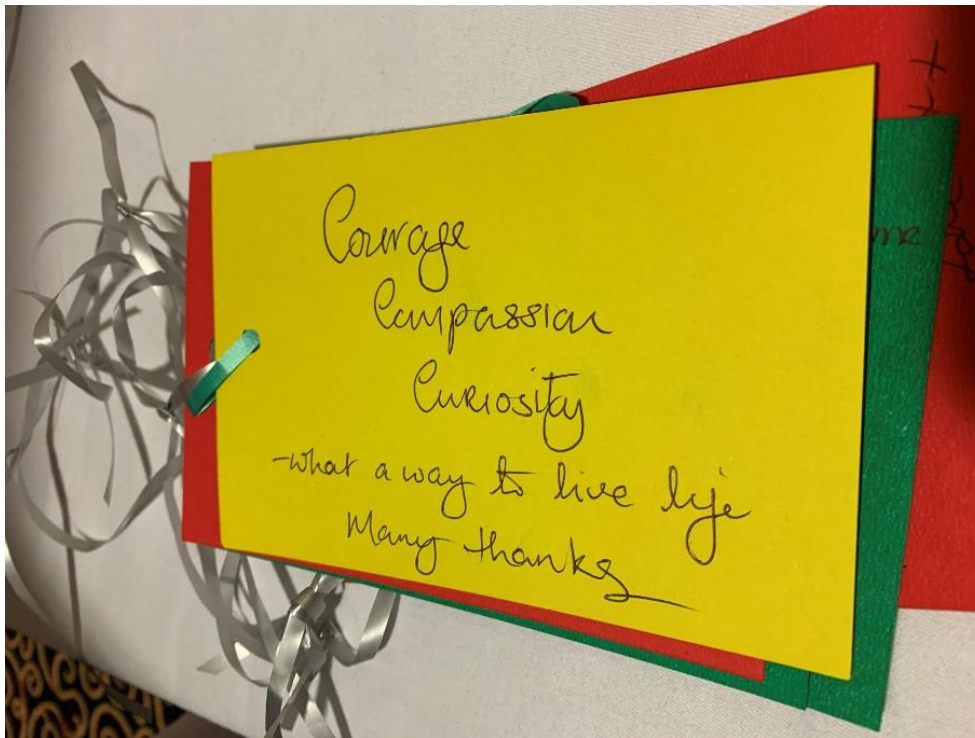 Courage
Compassion
Curiosity
-what a way to live life
Many thanks
me